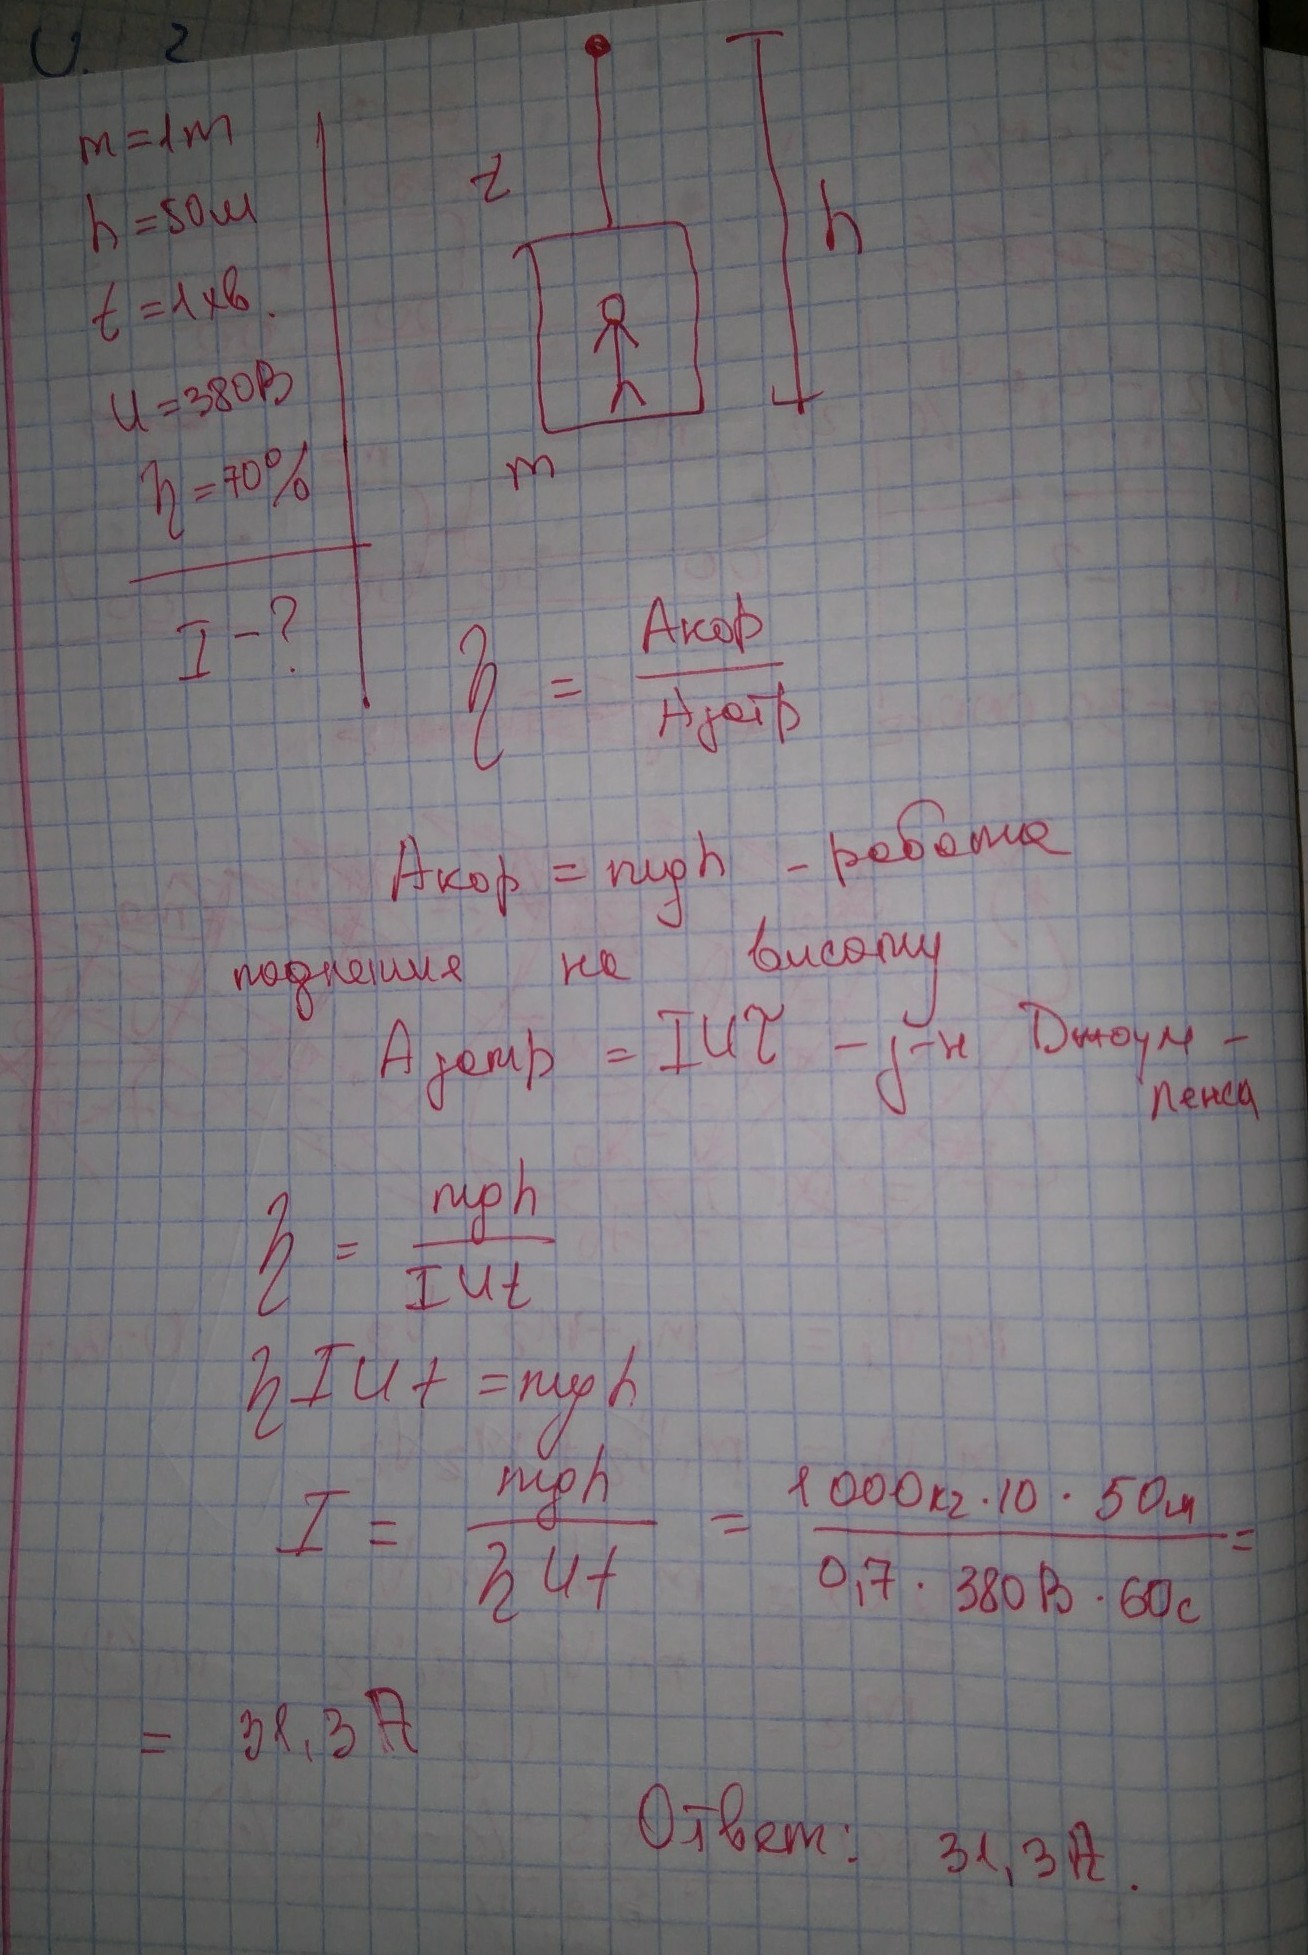 m = 1т
h = 50м
t = 1хв.
U = 380В
η = 70%
I - ?
τ
h
m
η = Акор / Азатр
Акор = mgh - работа
поднятия на висоту
Азатр = IUτ - з-н Джоуля -
Ленса
η = mgh / IUt
ηIUt = mgh
I = mgh / ηUt = 1000кг · 10 · 50м / 0,7 · 380В · 60с =
= 31,3А
Ответ: 31,3А.